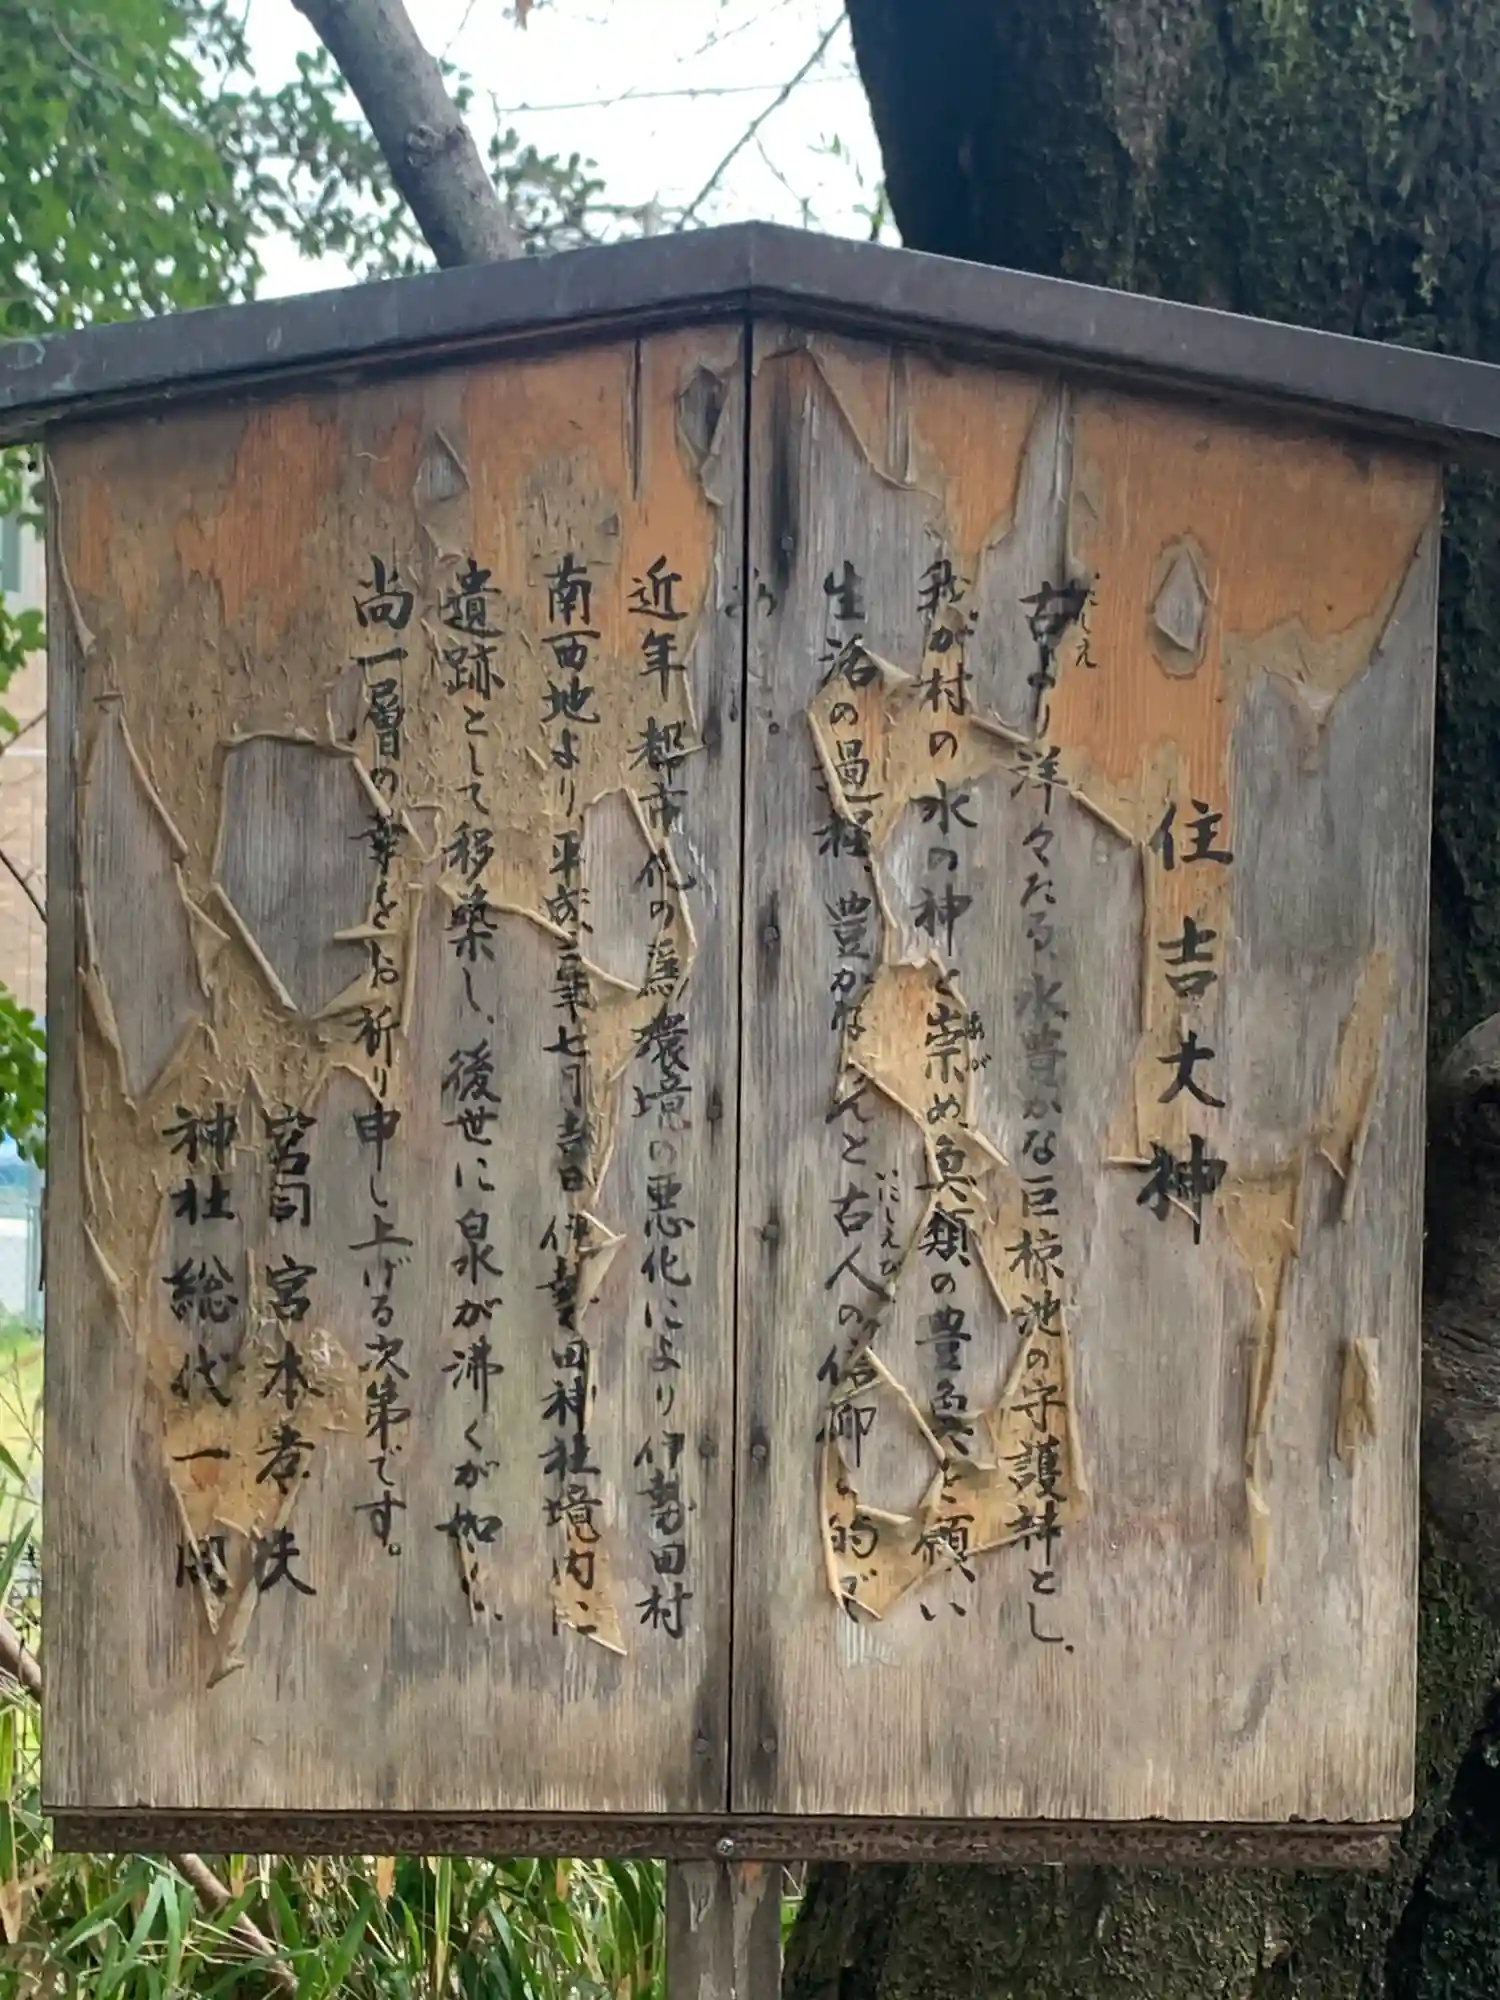 住吉大神
古より洋々たる、水豊かな巨椋池の守護神とし、
我が村の水の神と崇め、魚類の豊魚を願い
生活の過程、豊かならんと古人の信仰の的で
あろう。
近年都市化の為、環境の悪化により伊勢田村
南西地より平成三年七月吉日伊勢田神社境内に
遺跡として移築し、後世に泉が沸くが如く、
尚一層の幸をお祈り申し上げる次第です。
宮司 宮本孝夫
神社総代一同